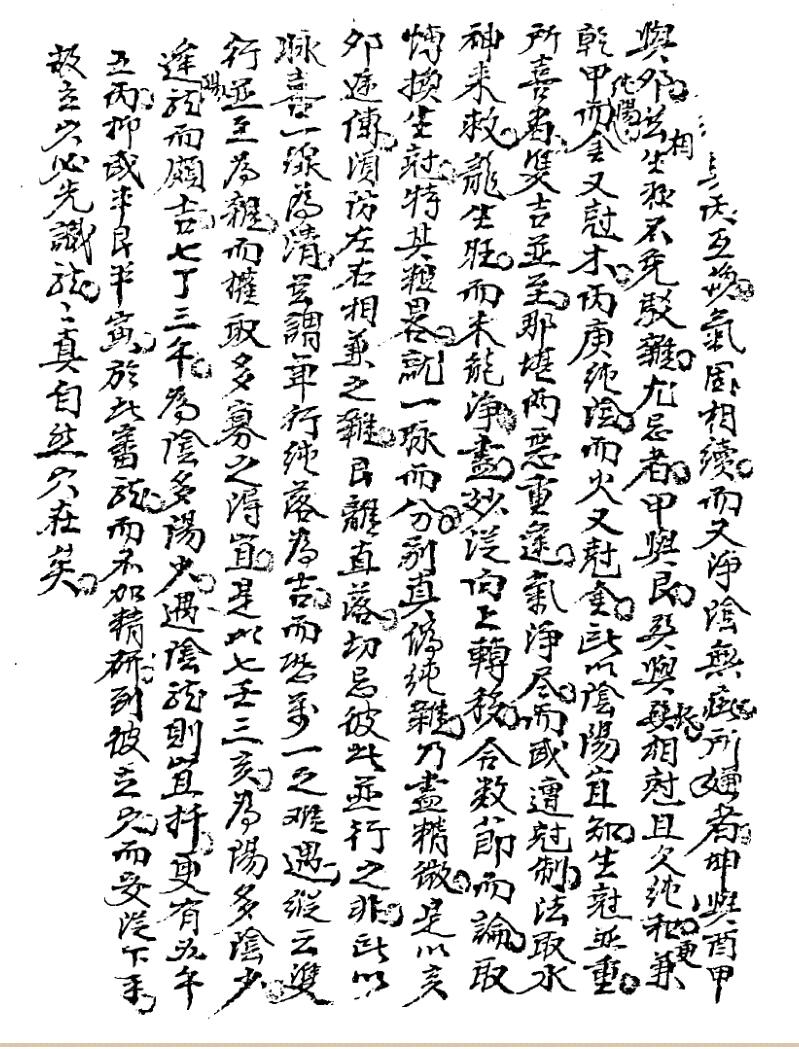 亥丙互換。氣固相續。而又淨陰無疵。所嫌者。坤與酉甲
與卯。雖相生於不免駁雜。尤忌者。甲與艮。癸與巽相尅。且欠純和。兼更
乾甲純陽而金又尅木。丙庚純陰而火又尅金。此以陰陽宜知。生尅並重。
所喜者。雙吉並至。那堪兩惡重逢。氣淨尽。而或遭尅制。法取水
神來救。龍生旺。而未能淨盡。妙從向上轉移。合數節而論。取
博換生尅特其粗畧。就一脉而分。別真偽純雜。乃盡精微。是以亥
卯迭傳。須防左右相兼之雜。艮離直落。切忌彼此並行之非。此以
脉喜一線為清。豈謂單行純落為吉。而恐萬一之難遇。縱云雙
行並至為雜。而權取多寡之得宜。是以七壬三亥。為陽多陰少。
逢陽龍而頗吉。七丁三午。為陰多陽少。遇陰龍則宜扦。更有五午
五丙。抑或半艮半寅。於此審龍而不加精研。到彼立穴。而妄從下手。
故立穴必先識龍。龍真自然穴在矣。